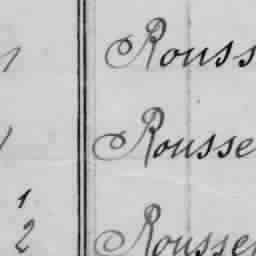 Rouss
Rousse
1
2 Rousse